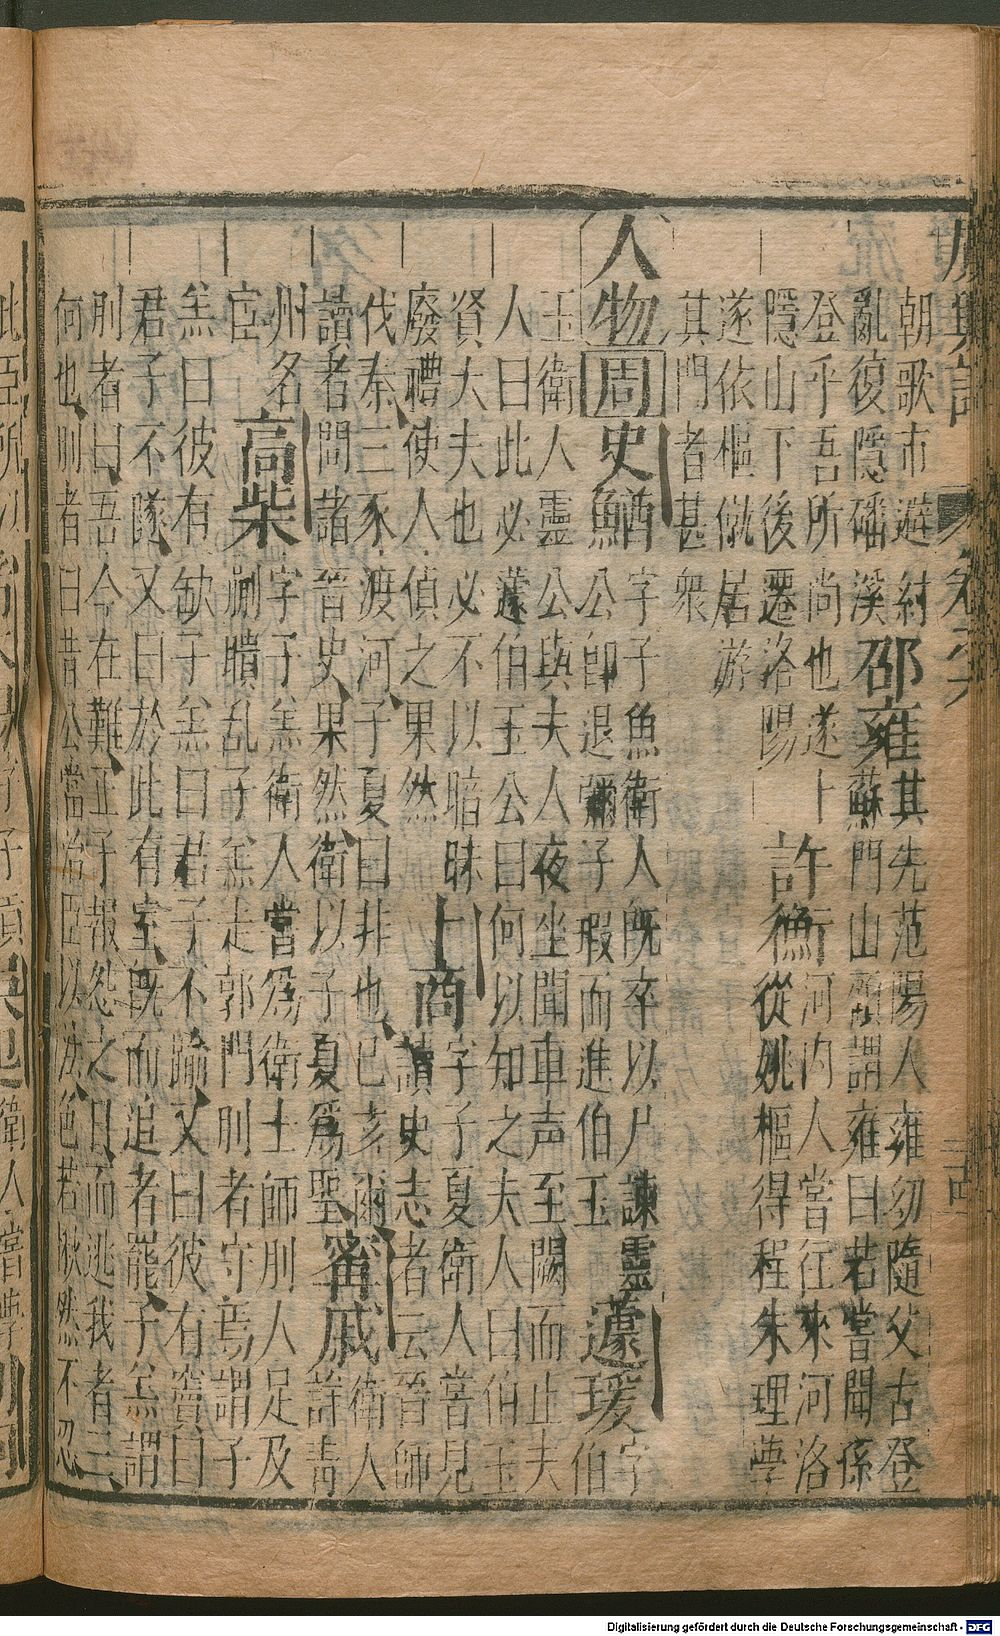 廣輿記
卷之六
朝歌市避紂
亂復隱磻溪
登乎吾所尚也遂卜
隱山下後遷洛陽
邵雍
其先范陽人雍幼隨父古登
蘇門山顧謂雍曰若嘗聞孫
許衡
河内人當往來河洛
從姚樞得程朱理學
遂依樞僦居游
其門者甚衆
人物
周
史鰌
字子魚衛人既卒以尸諫靈
公卽退彌子瑕而進伯玉
蘧瑗
字伯
玉衛人靈公與夫人夜坐聞車声至闕而止夫
人曰此必蘧伯玉公曰何以知之夫人曰伯玉
賢大夫也必不以暗昧
廢禮使人偵之果然
卜商
字子夏衛人嘗見
讀史志者云晉師
伐秦三豕渡河子夏曰非也己亥爾
讀者問諸晉史果然衛以子夏爲聖
甯戚
衛人
詳青
州名
宦
高柴
字子羔衛人嘗爲衛士師刖人足及
蒯聵乱子羔走郭門刖者守焉謂子
羔曰彼有缺子羔曰君子不踰又曰彼有竇曰
君子不隧又曰於此有室既而追者罷子羔謂
刖者曰吾今在難正子報怨之日而逃我者三
何也刖者曰昔公當治臣以法色若愀然不忍
衛人嘗學
Digitalisierung gefördert durch die Deutsche Forschungsgemeinschaft - DFG